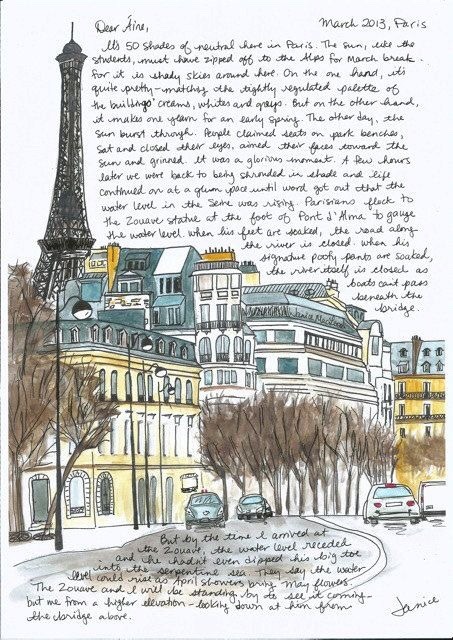 Dear Áine,
March 2013, Paris
It's 50 shades of neutral here in Paris. The sun, like the
students, must have zipped off to the Alps for March break.
For it is shady skies around here. On the one hand, it's
quite pretty - matching the tightly regulated palette of
the buildings' creams, whites and grays. But on the other hand,
it makes one yearn for an early spring. The other day, the
sun burst through. People claimed seats on park benches,
sat and closed their eyes, aimed their faces toward the
sun and grinned. It was a glorious moment. A few hours
later we were back to being shrouded in shade and life
continued on at a glum pace until word got out that the
water level in the Seine was rising. Parisians flock to
the Zouave statue at the foot of Pont d'Alma to gauge
the water level. When his feet are soaked, the road along
the river is closed. When his
signature poofy pants are soaked,
the river itself is closed as
boats can't pass
beneath the
bridge.
But by the time I arrived at
the Zouave, the water level receded
and he hadn't even dipped his big toe
into the serpentine sea. They say the water
level could rise as April showers bring May flowers.
The Zouave and I will be standing by to see it coming -
but me from a higher elevation - looking down at him from
the bridge above.
Janice